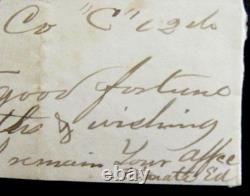 Co "C" 12th
good fortune
& wishing
remain Your affec
Ed